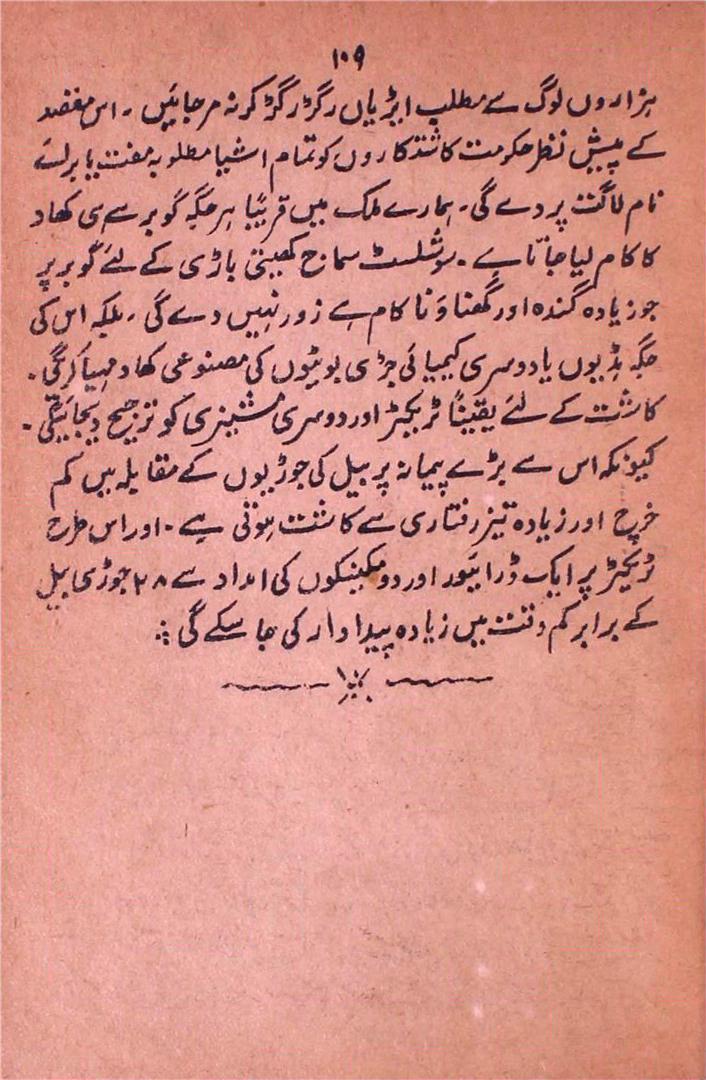 ۱۰۹
ہزاروں لوگ بے مطلب ایڑیاں رگڑ رگڑ کر نہ مر جائیں ۔ اس مقصد
کے پیش نظر حکومت کاشتکاروں کو تمام اشیا مطلوبہ مفت یا برائے
نام لاگت پر دے گی ۔ ہمارے ملک میں قریباً ہر جگہ گوبر سے ہی کھاد
کا کام لیا جاتا ہے ۔ سوشلسٹ سماج کھیتی باڑی کے لئے گوبر پر
جو زیادہ گندہ اور گھناؤنا کام ہے زور نہیں دے گی ۔ بلکہ اس کی
جگہ ہڈیوں یا دوسری کیمیائی جڑی بوٹیوں کی مصنوعی کھاد مہیا کریگی ۔
کاشت کے لئے یقیناً ٹریکٹر اور دوسری مشینری کو ترجیح دیجائیگی ۔
کیونکہ اس سے بڑے پیمانہ پر بیل کی جوڑیوں کے مقابلہ میں کم
خرچ اور زیادہ تیز رفتاری سے کاشت ہوتی ہے ۔ اور اس طرح
ٹریکٹر پر ایک ڈرائیور اور دو مکینکوں کی امداد سے ۲۸ جوڑی بیل
کے برابر کم وقت میں زیادہ پیداوار کی جا سکے گی